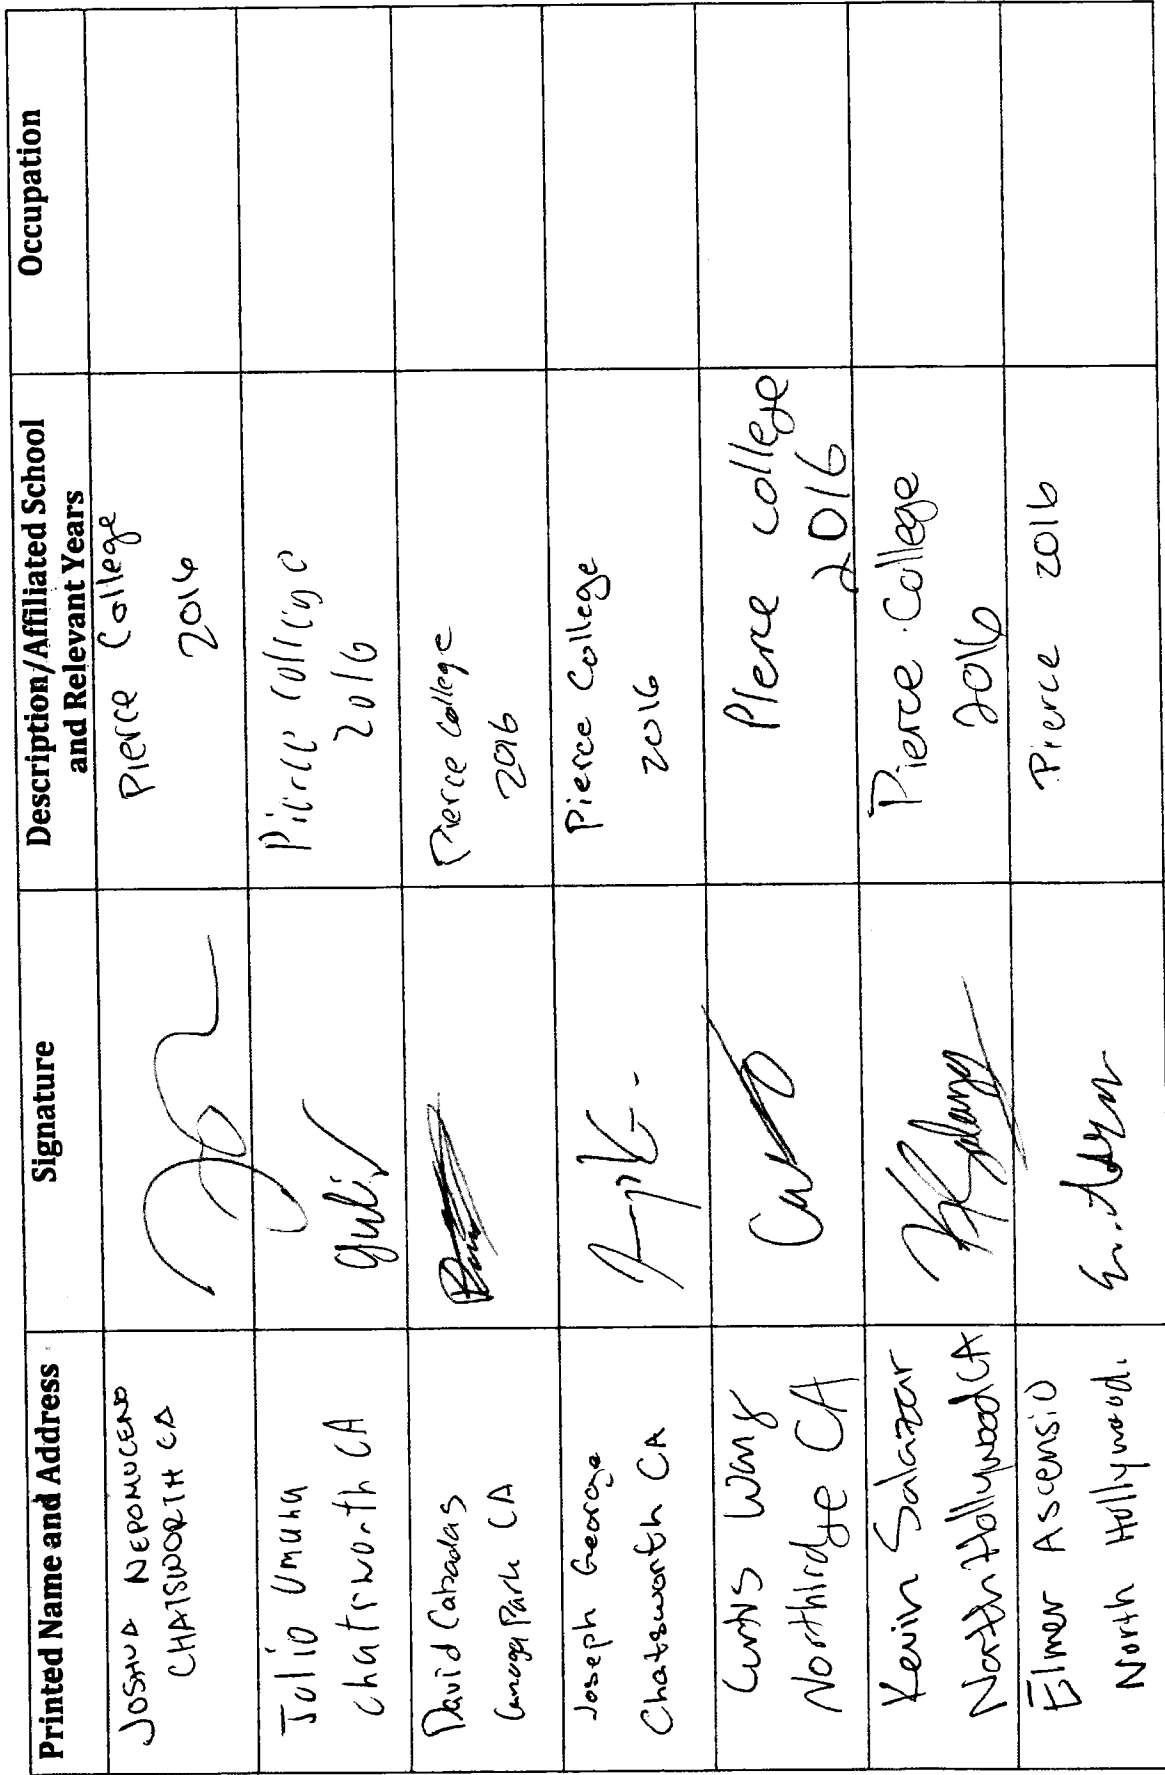 Printed Name and Address
Signature
Description/Affiliated School
and Relevant Years
Occupation
JOSHUA NEPOMUCENO
CHATSWORTH CA
Pierce College
2016
Julio Umana
Chatsworth CA
Pierce College
2016
David Cabadas
Canoga Park CA
Pierce College
2016
Joseph George
Chatsworth CA
Pierce College
2016
Curtis Wang
Northridge CA
Pierce college
2016
Kevin Salazar
North Hollywood CA
Pierce College
2016
Elmer Ascensio
North Hollywood.
Pierce 2016